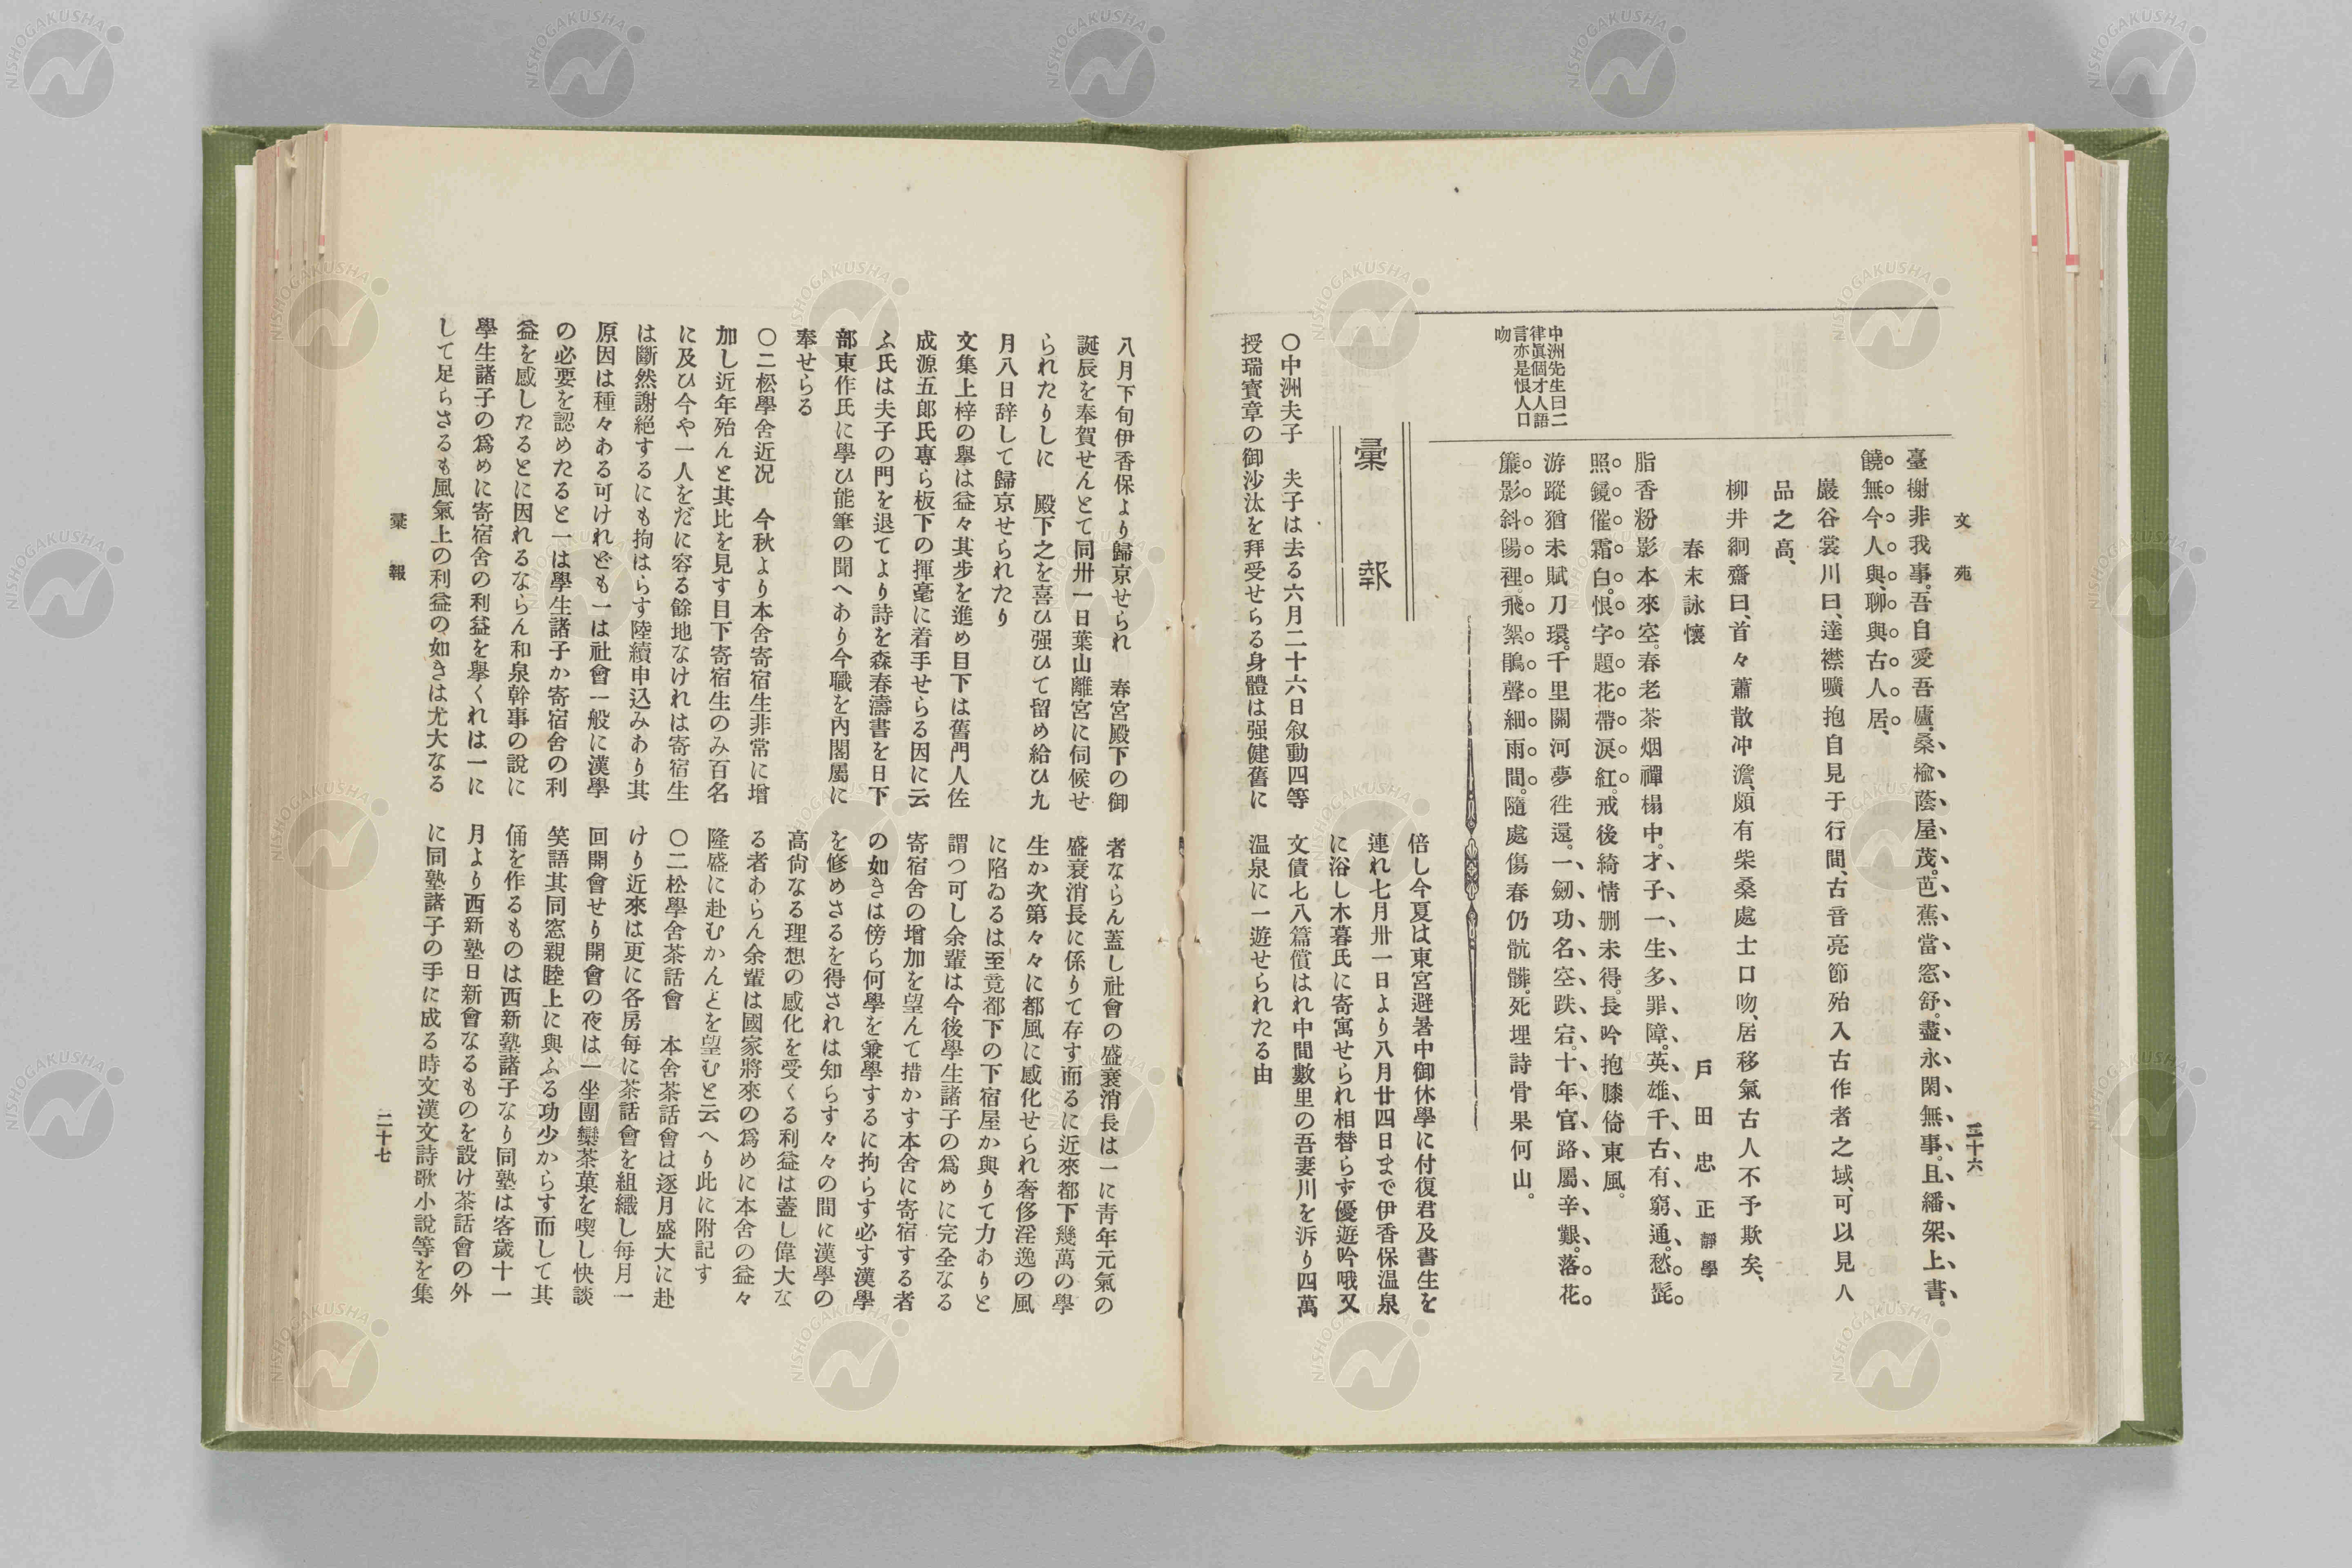 文苑
二十六
臺榭非我事。吾自愛吾廬。桑楡蔭屋茂。芭蕉當窓舒。盡永閑無事。且繙架上書。
饒無今人與、聊與古人居、
巖谷裳川曰、達襟曠抱自見于行間、古音亮節殆入古作者之域、可以見人
品之高、
柳井絅齋曰、首々蕭散冲澹、頗有柴桑處士口吻、居移氣古人不予欺矣、
春末詠懷
戶田忠正 靜學
脂香粉影本來空。春老茶烟禪榻中。才子一生多罪障。英雄千古有窮通。愁髭
照鏡催霜白。恨字題花帶淚紅。戒後綺情刪未得。長吟抱膝倚東風。
游蹤猶未賦刀環。千里關河夢徃還。一劒功名空跌宕。十年官路屬辛艱。落花
簾影斜陽裡。飛絮鵑聲細雨間。隨處傷春仍骯髒。死埋詩骨果何山。
中洲先生曰二
律眞個才人語
言亦是恨人口
吻
彙報
〇中洲夫子　夫子は去る六月二十六日叙勳四等
授瑞寶章の御沙汰を拜受せらる身體は强健舊に
倍し今夏は東宮避暑中御休學に付復君及書生を
連れ七月卅一日より八月廿四日まで伊香保温泉
に浴し木暮氏に寄寓せられ相替らす優遊吟哦又
文債七八篇償はれ中間數里の吾妻川を泝り四萬
温泉に一遊せられたる由
八月下旬伊香保より歸京せられ　春宮殿下の御
誕辰を奉賀せんとて同卅一日葉山離宮に伺候せ
られたりしに　殿下之を喜ひ强ひて留め給ひ九
月八日辞して歸京せられたり
文集上梓の擧は益々其步を進め目下は舊門人佐
成源五郎氏專ら板下の揮毫に着手せらる因に云
ふ氏は夫子の門を退てより詩を森春濤書を日下
部東作氏に學ひ能筆の聞へあり今職を內閣屬に
奉せらる
〇二松學舍近况　今秋より本舍寄宿生非常に增
加し近年殆んと其比を見す目下寄宿生のみ百名
に及ひ今や一人をだに容る餘地なけれは寄宿生
は斷然謝絕するにも拘はらす陸續申込みあり其
原因は種々ある可けれども一は社會一般に漢學
の必要を認めたると一は學生諸子か寄宿舍の利
益を感したるとに因れるならん和泉幹事の說に
學生諸子の爲めに寄宿舍の利益を擧くれは一に
して足らさるも風氣上の利益の如きは尤大なる
者ならん蓋し社會の盛衰消長は一に靑年元氣の
盛衰消長に係りて存す而るに近來都下幾萬の學
生か次第々々に都風に感化せられ奢侈淫逸の風
に陷ゐるは至竟都下の下宿屋か與りて力ありと
謂つ可し余輩は今後學生諸子の爲めに完全なる
寄宿舍の增加を望んて措かす本舍に寄宿する者
の如きは傍ら何學を兼學するに拘らす必す漢學
を修めさるを得されは知らす々々の間に漢學の
高尙なる理想の感化を受くる利益は蓋し偉大な
る者あらん余輩は國家將來の爲めに本舍の益々
隆盛に赴むかんとを望むと云へり此に附記す
〇二松學舍茶話會　本舍茶話會は逐月盛大に赴
けり近來は更に各房每に茶話會を組織し每月一
回開會せり開會の夜は一坐團欒茶菓を喫し快談
笑語其同窓親睦上に與ふる功少からす而して其
俑を作るものは西新塾諸子なり同塾は客歲十一
月より西新塾日新會なるものを設け茶話會の外
に同塾諸子の手に成る時文漢文詩歌小說等を集
彙報
二十七